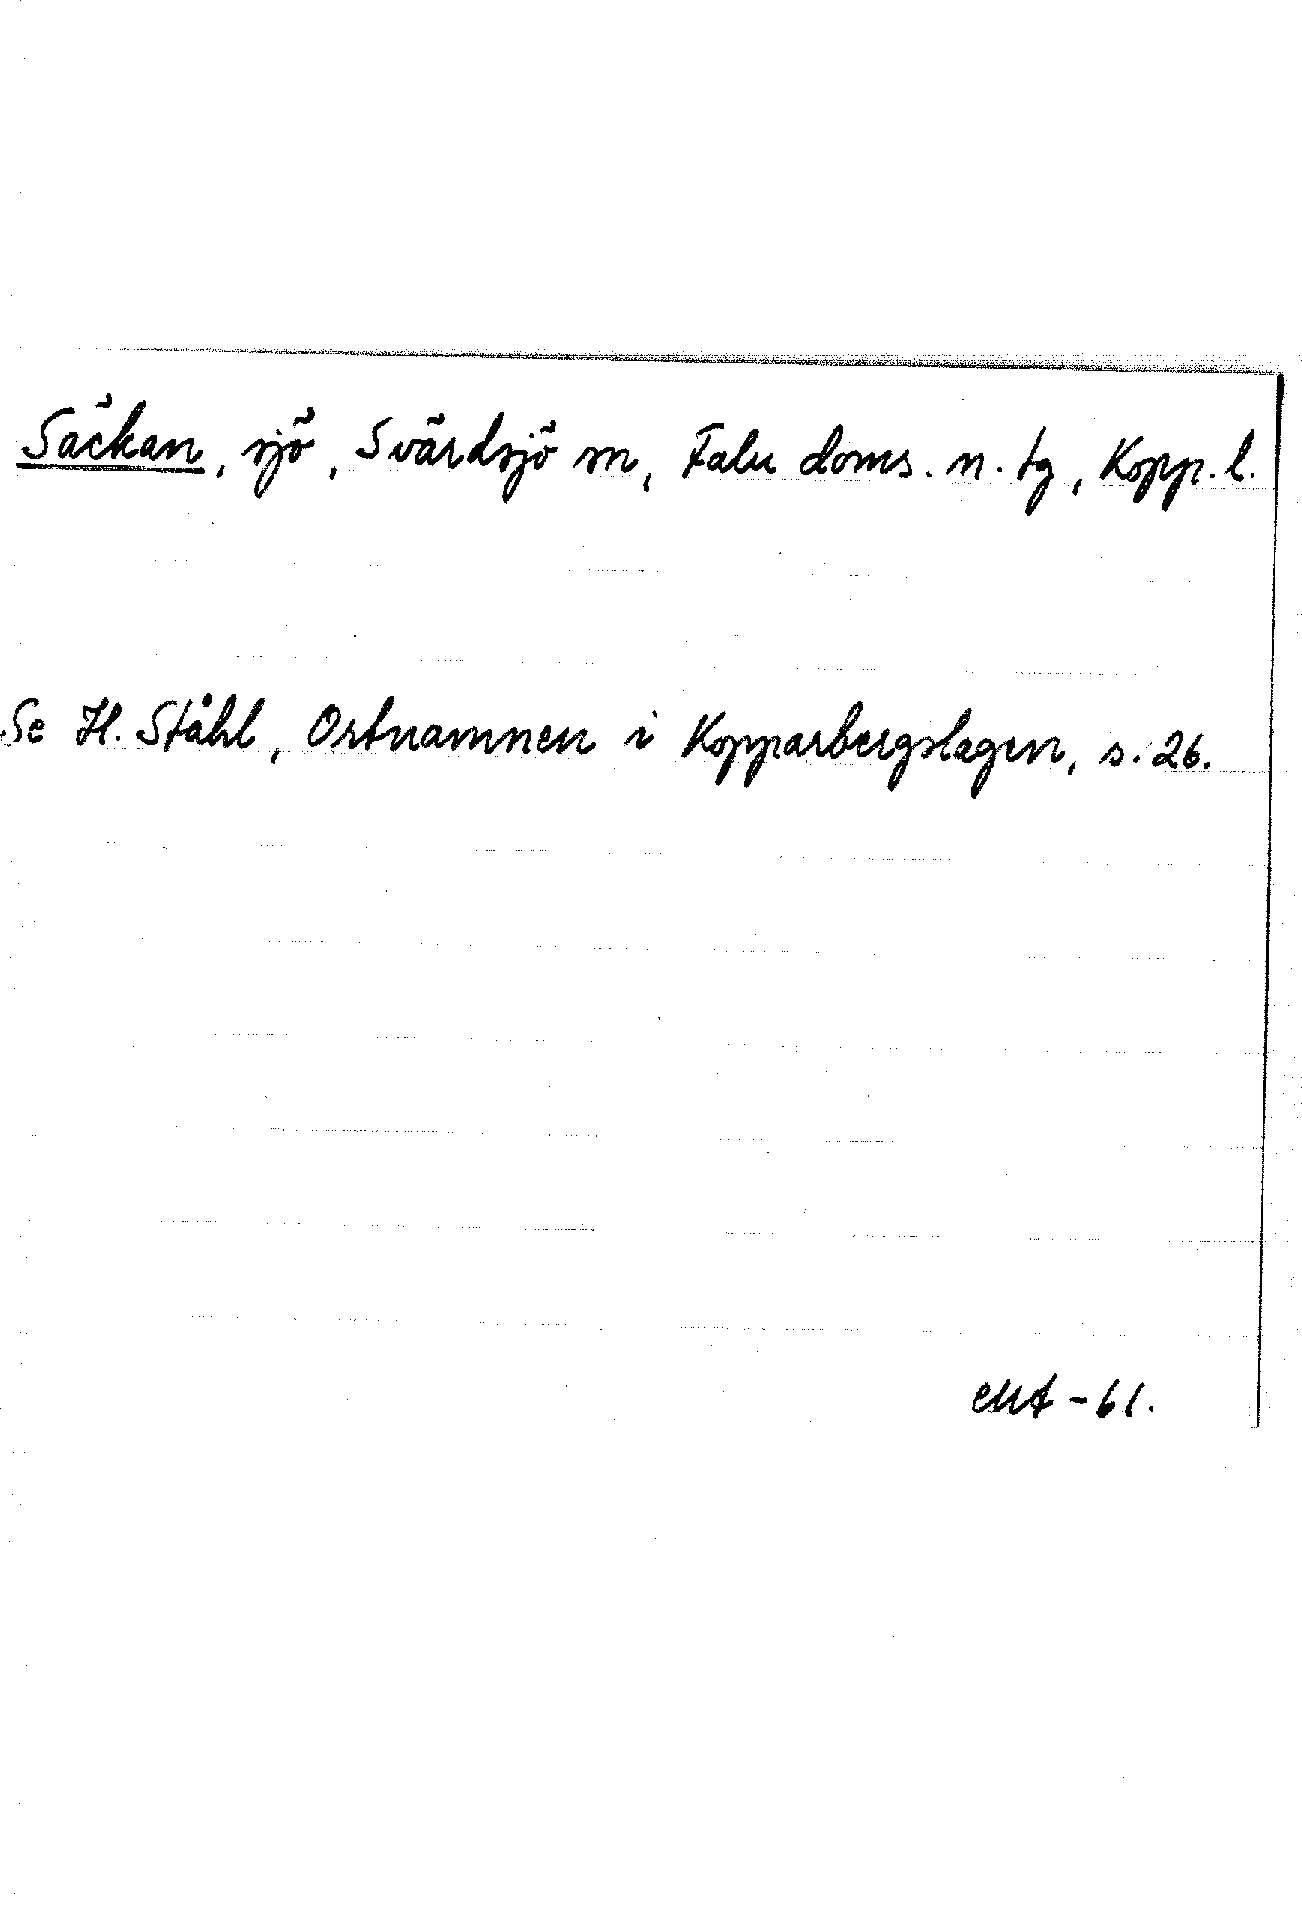 Säckan, sjö, Svärdsjö sn, Falu doms. n. tg, Kopp. l.
Se H. Ståhl, Ortnamnen i Kopparbergslagen, s. 26.
-61.